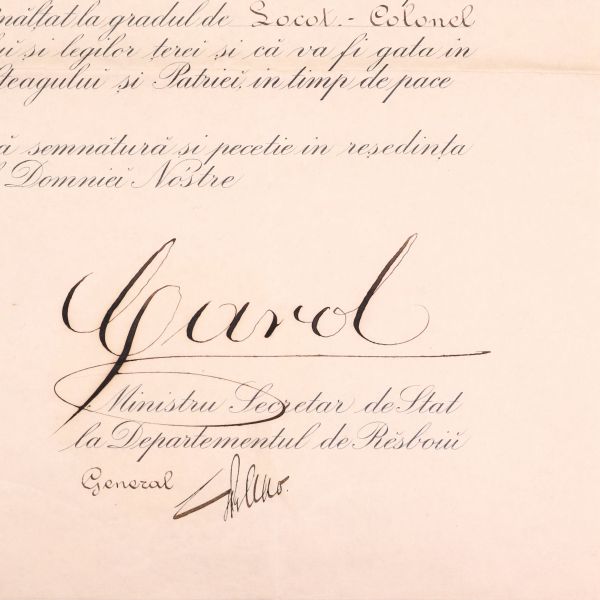 năltat la gradul de Locot.- Colonel
lui si legilor terei si că va fi gata in
steagului și Patriei, in timp de pace
ă semnătură si pecetie in reședinta
l Domniei Nóstre
Carol
Ministru Secretar de Stat
la Departementul de Rĕsboiŭ
General